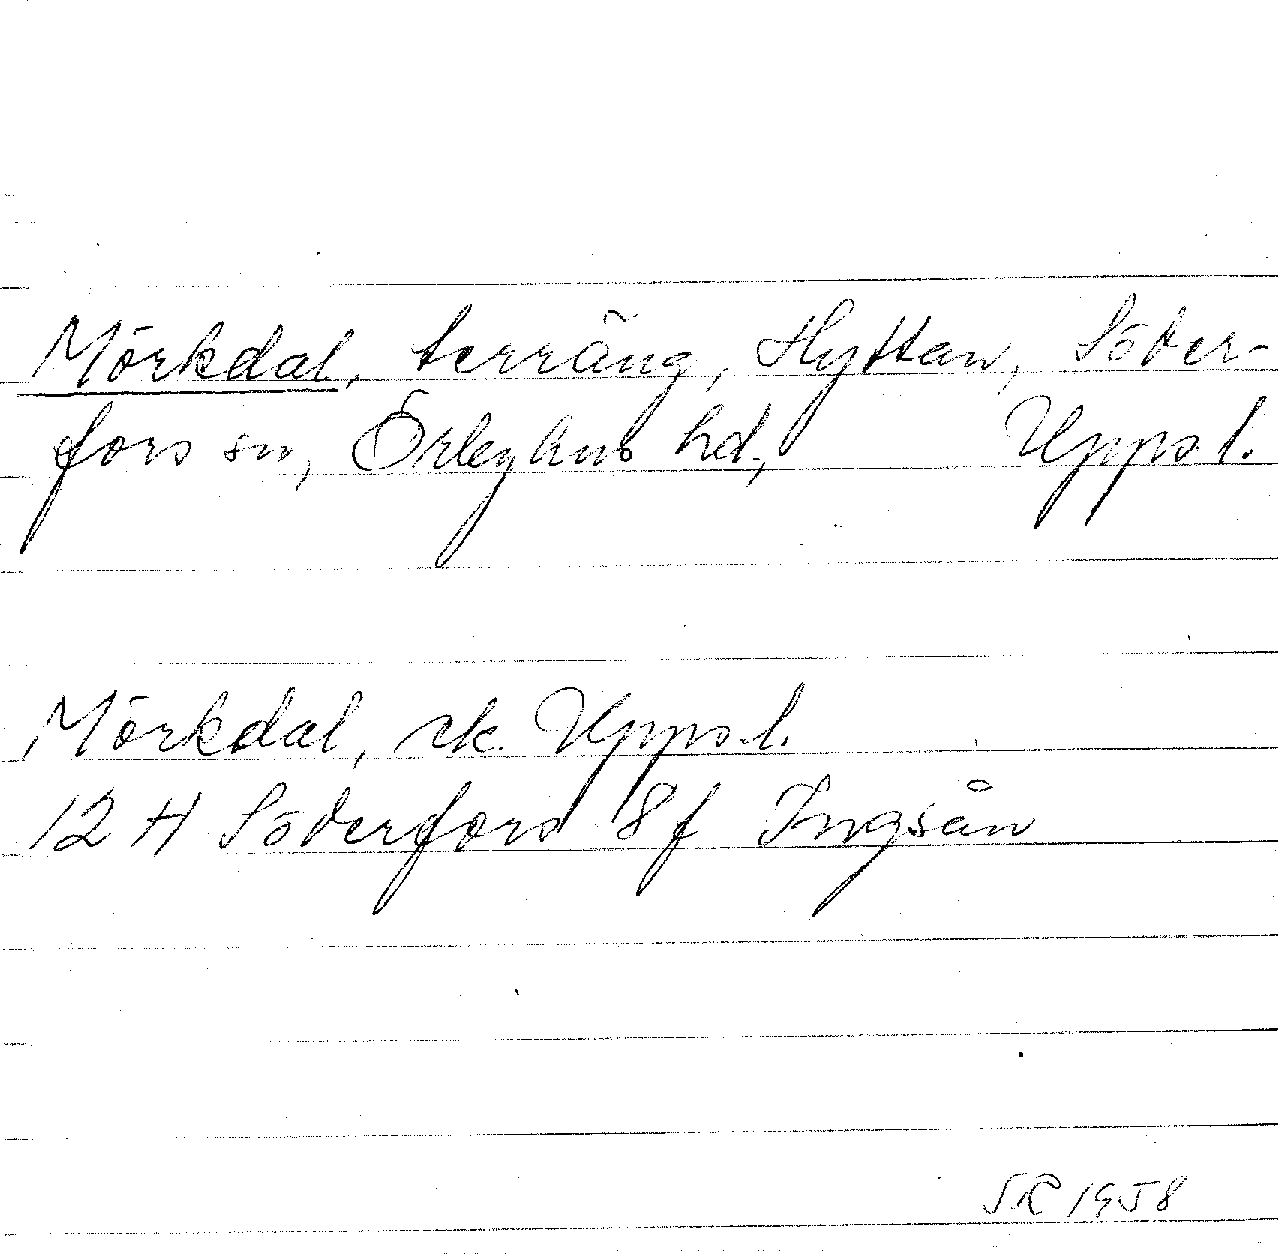 Mörkdal, terräng, Hyttan, Söder-
fors sn, Örbyhus hd, Uppsl.
Mörkdal, ek. Uppsl.
12 H Söderfors 8f Ingsån
SR 1958